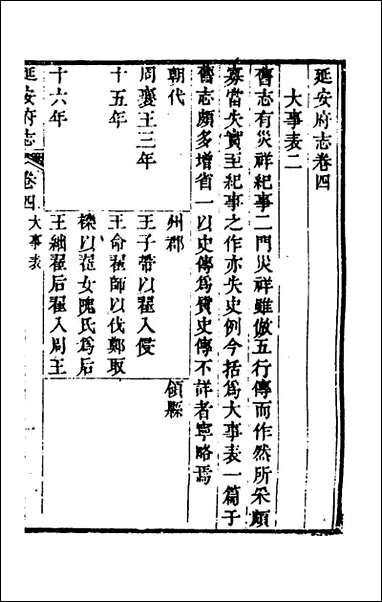 延安府志卷四
大事表二
舊志有災祥紀事二門災祥雖倣五行傳而作然所采頗
寡當失實至紀事之作亦失史例今括爲大事表一篇于
舊志頗多增省一以史傳爲質史傳不詳者寧略焉
朝代
州郡
領縣
周襄王三年
王子帶以翟入侵
十五年
王命翟師以伐鄭取
櫟以翟女隗氏爲后
十六年
王絀翟后翟入周王
延安府志
卷四
大事表